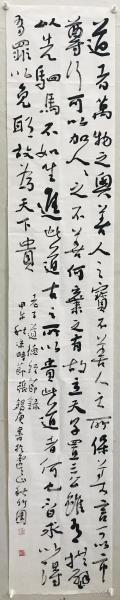 道者萬物之奧善人之寶不善人之所保美言可以市
尊行可以加人人之不善何棄之有故立天子置三公雖有拱璧
以先駟馬不如坐進此道古之所以貴此道者何也不曰求以得
有罪以免耶故為天下貴
老子道德經節錄
甲午秋時節張錫庚書於雲山秋竹園